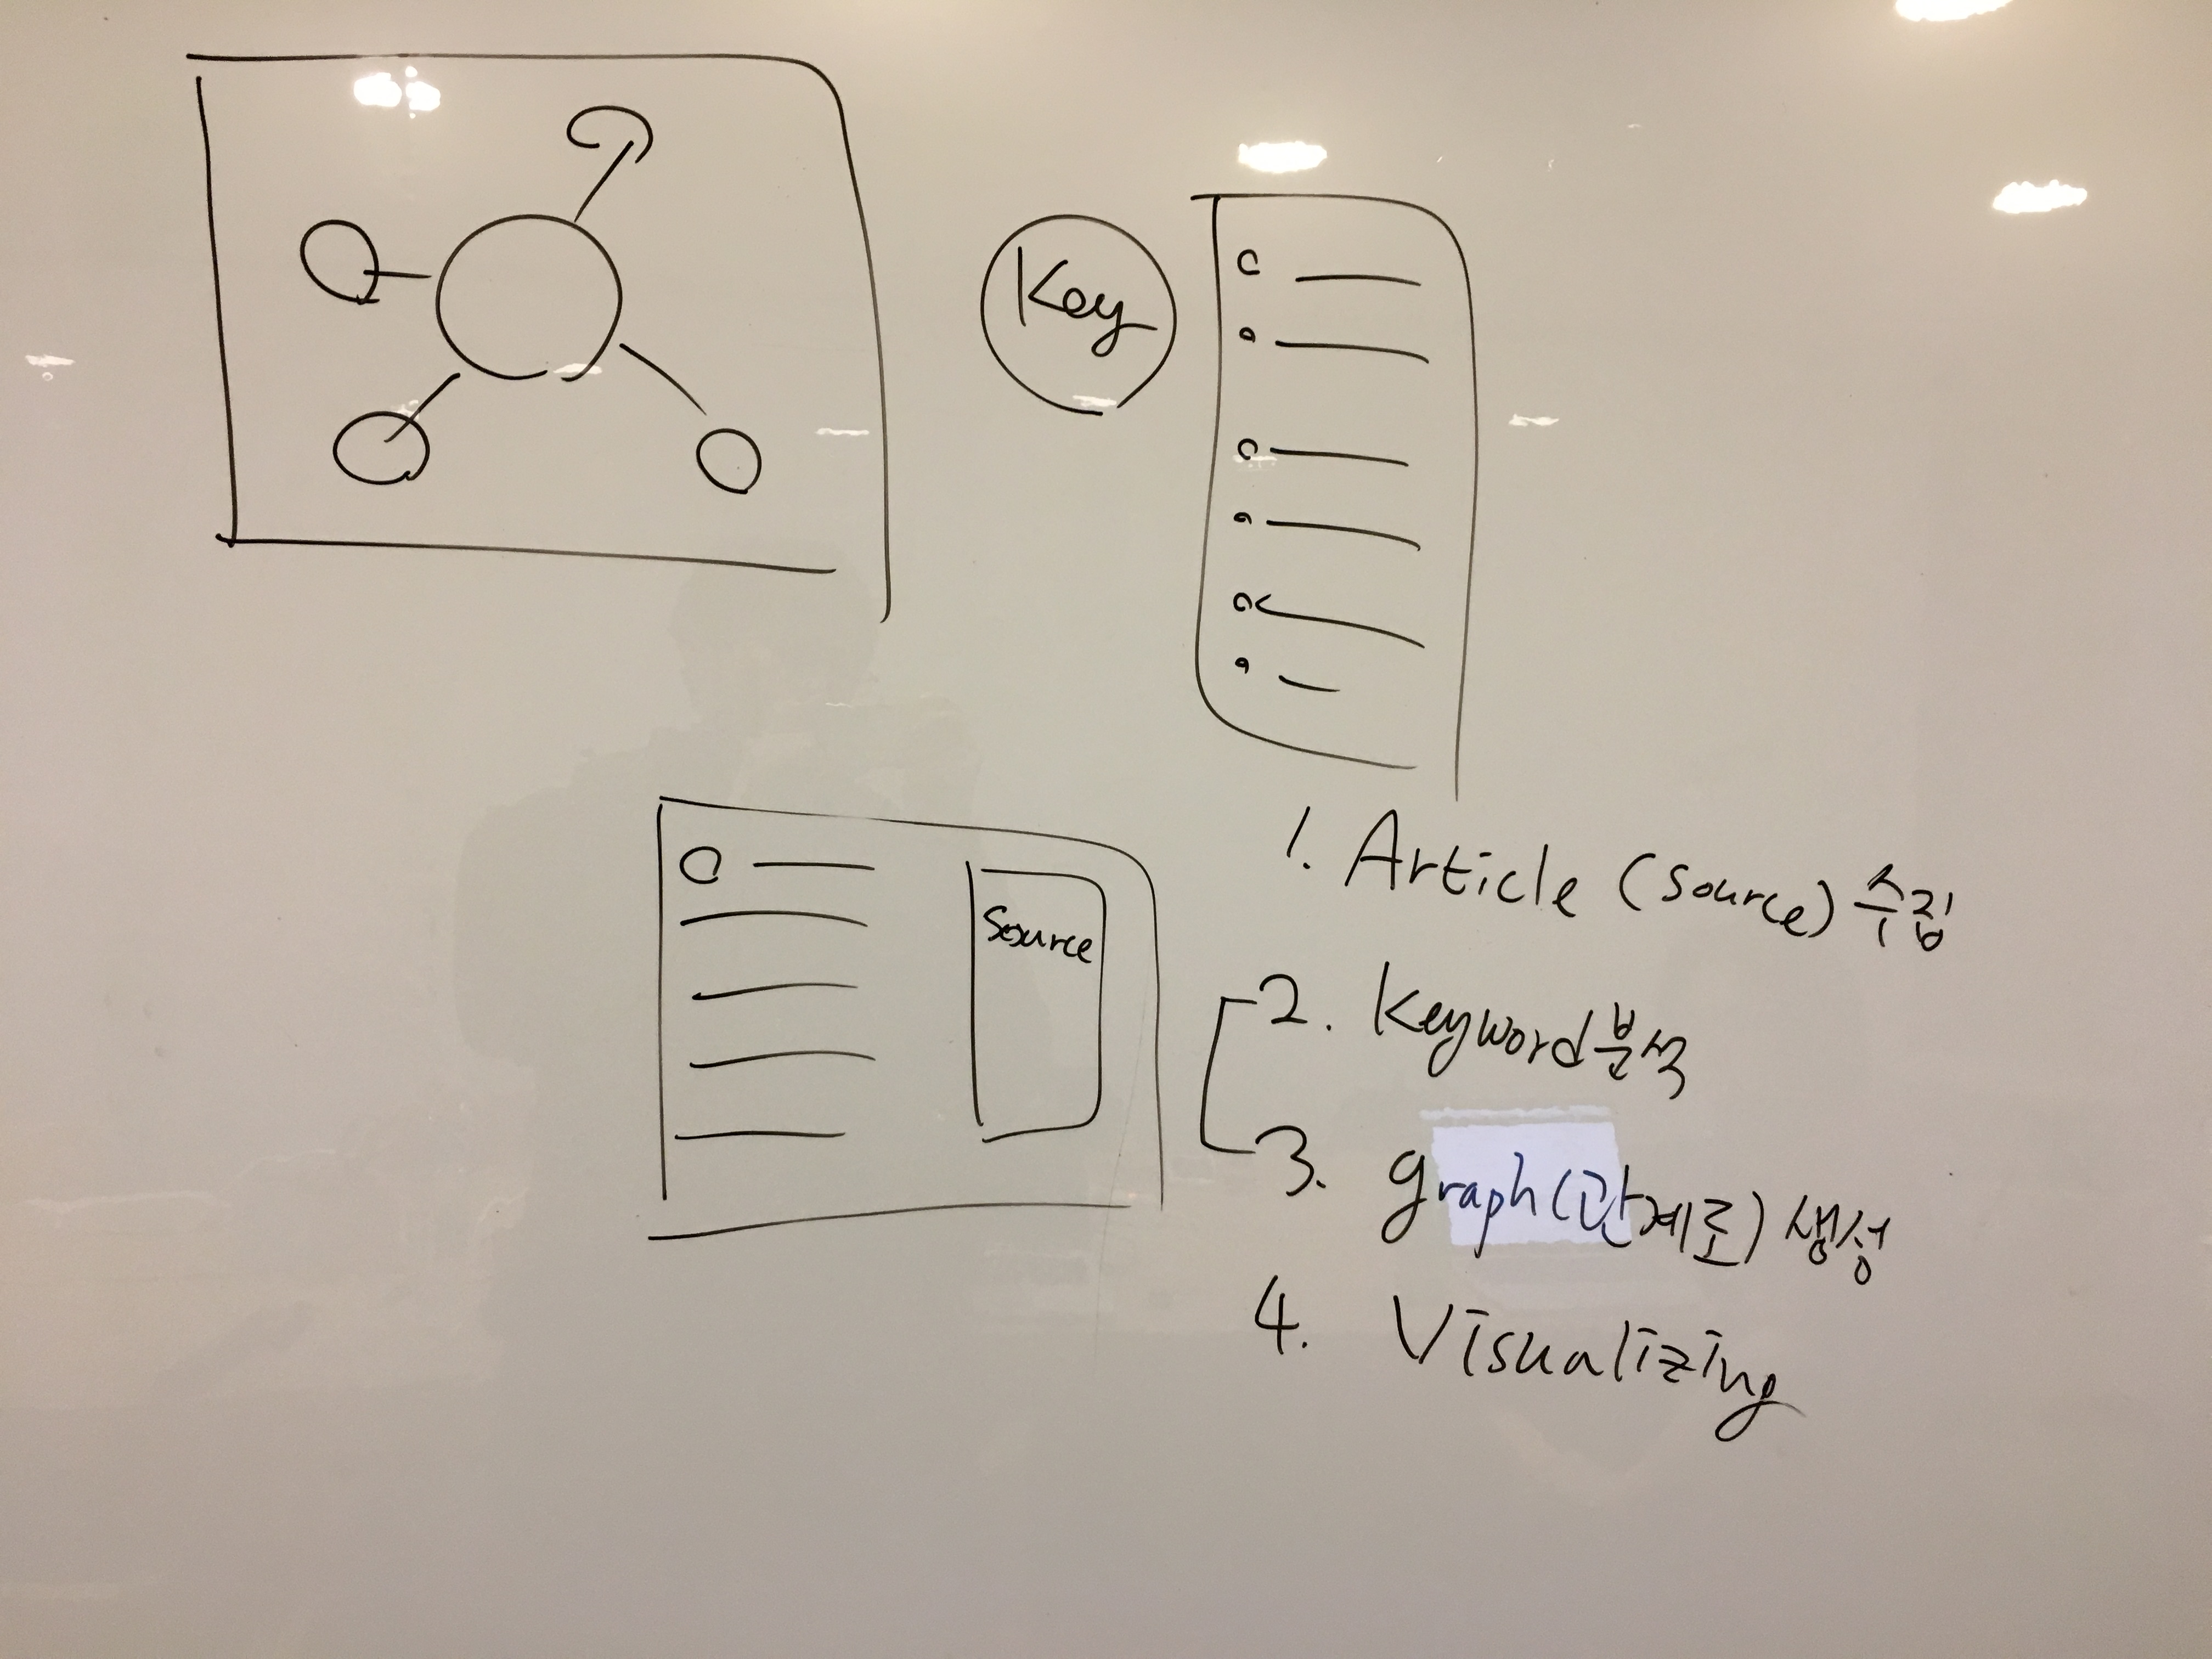 Key
Source
1. Article (source) 수집
2. Keyword분석
3. graph(관계로) 생성
4. Visualizing